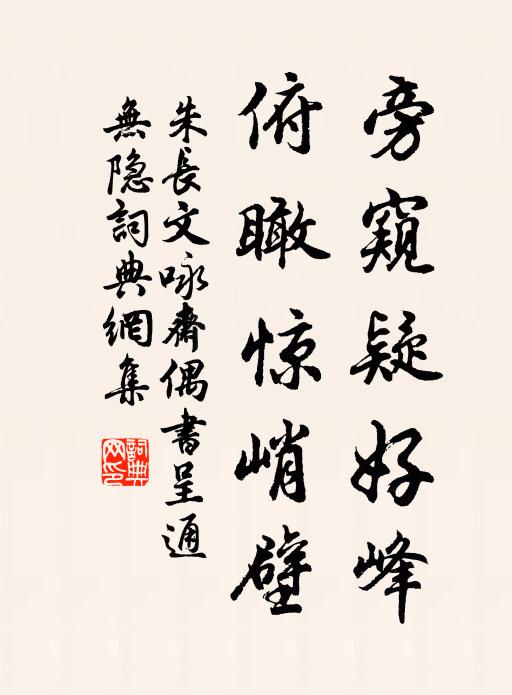 旁窺疑好峰
俯瞰惊峭壁
朱長文咏齋偶書呈通
無隐詞典網集
詞典網印